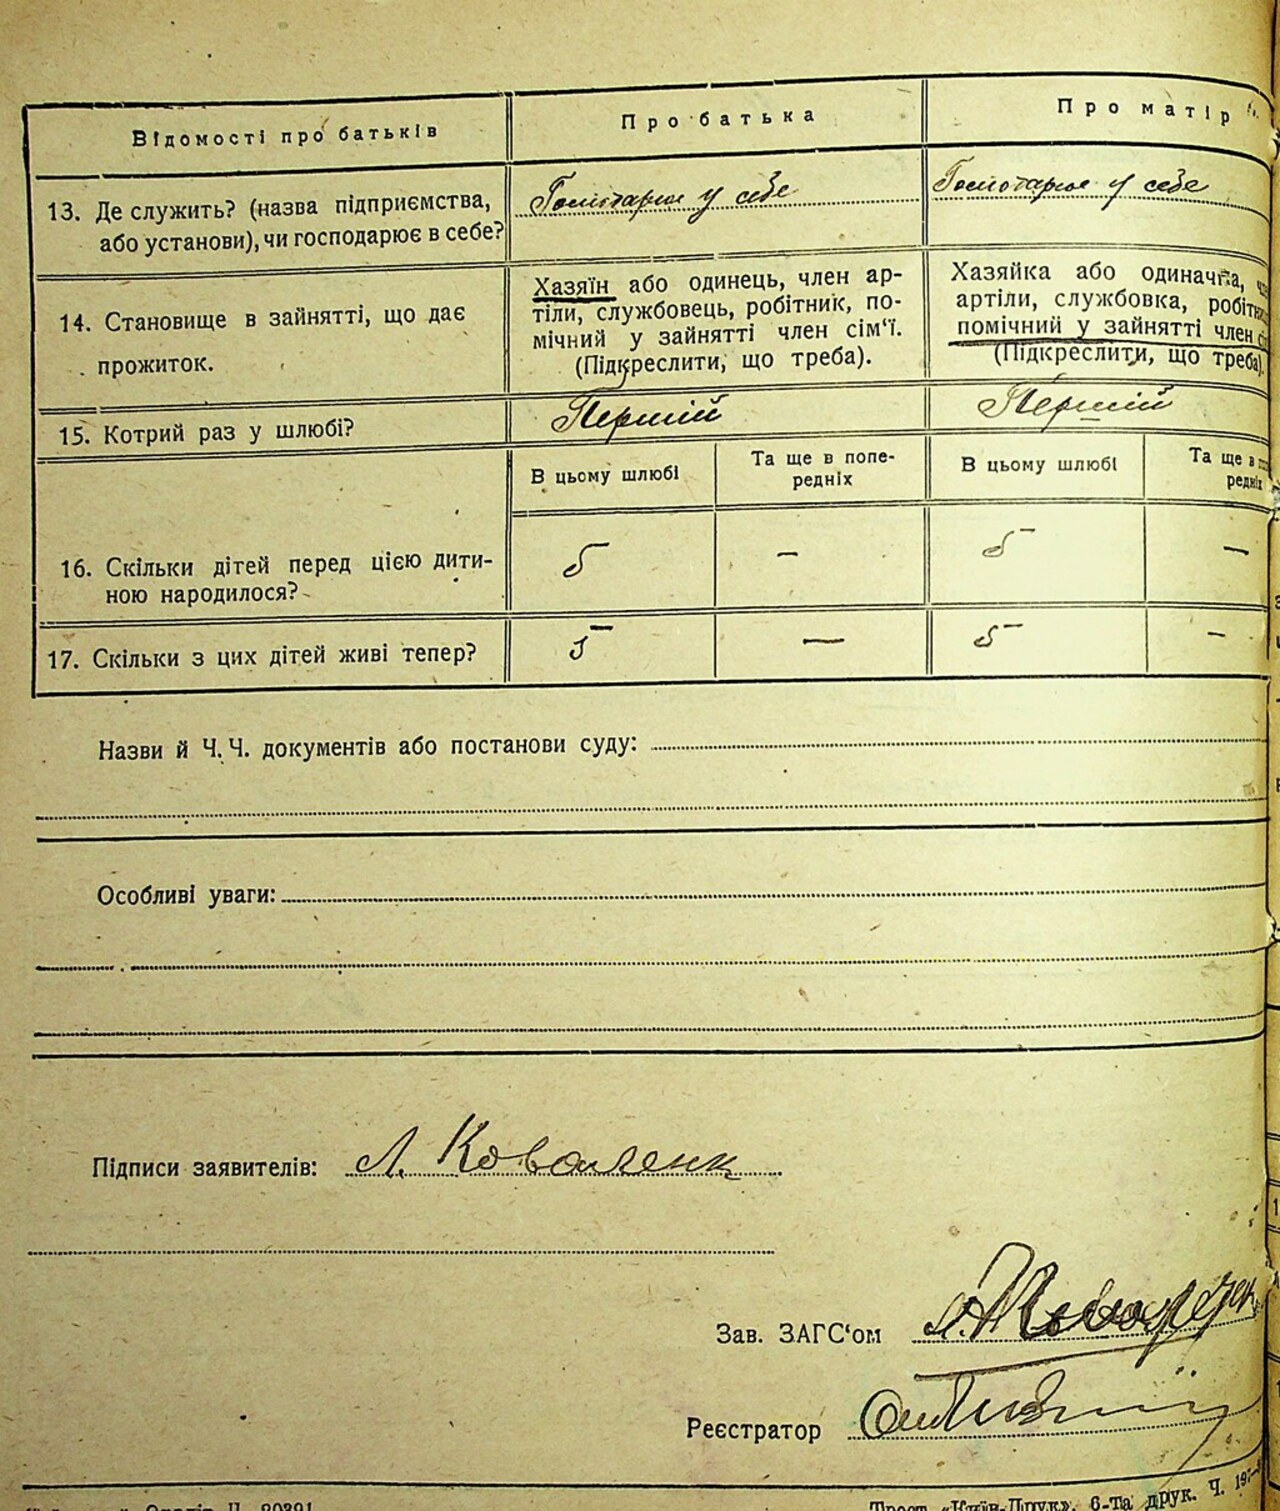 Відомості про батьків
Про батька
Про матір
13. Де служить? (назва підприємства,
або установи), чи господарює в себе?
Господарює у себе
Господарює у себе
14. Становище в зайнятті, що дає
прожиток.
Хазяїн або одинець, член ар-
тіли, службовець, робітник, по-
мічний у зайнятті член сім'ї.
(Підкреслити, що треба).
Хазяйка або одиначка,
артіли, службовка,
помічний у зайнятті член
(Підкреслити, що треба).
15. Котрий раз у шлюбі?
Першій
Першій
В цьому шлюбі
Та ще в попе-
редніх
В цьому шлюбі
Та ще в
редніх
16. Скільки дітей перед цією дити-
ною народилося?
5
—
5
—
17. Скільки з цих дітей живі тепер?
5
—
5
—
Назви й Ч. Ч. документів або постанови суду:
Особливі уваги:
Підписи заявителів: Л. Коваленк
Зав. ЗАГС'ом
Реєстратор
Трест „Київ-Друк", 6-та друк. Ч.